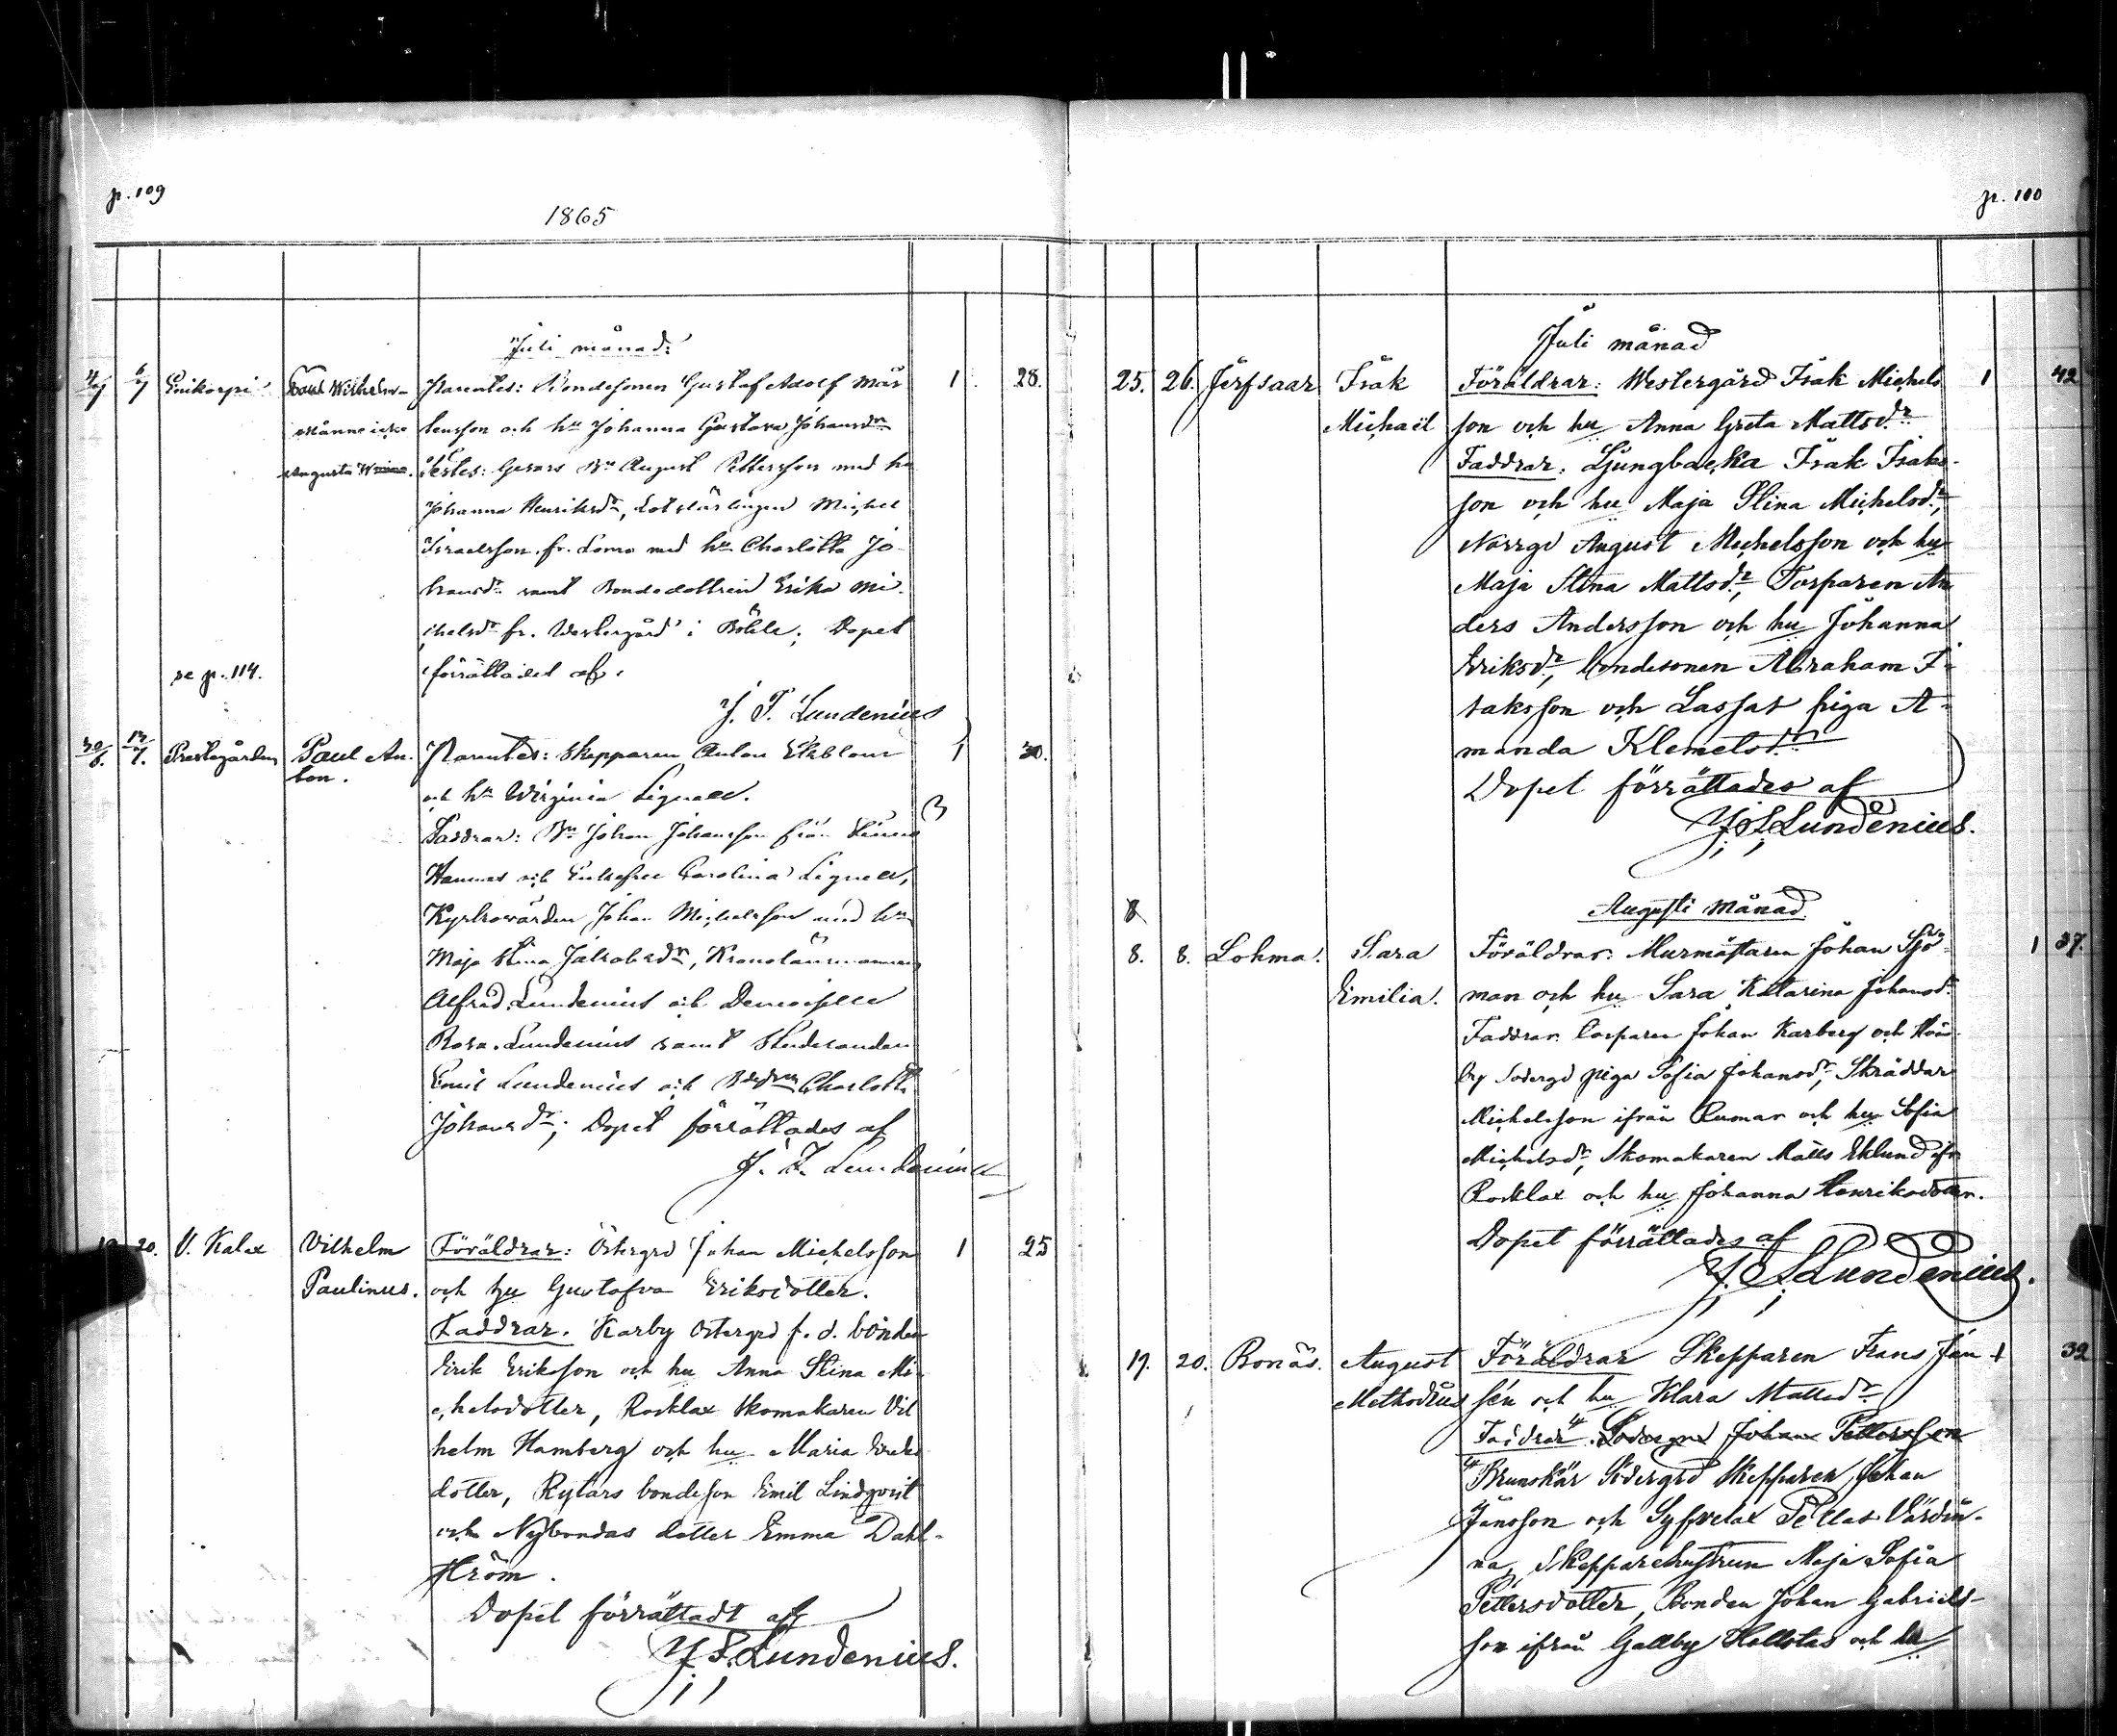 p. 109
1865
Juli månad:
4/7 6/7 Enikorpi Paul Wilhelm Parentes: Bondesonen Gustaf Adolf Mår 1 28.
Männe icke tensson och hu Johanna Gustava Johansdr
Augusta Testes: Gesars Bn August Pettersson med hu
Johanna Henriksdr, Lotslärlingen Michel
Israelsson fr. Lomo med hu Charlotta Jo
hansdr samt Bondedottren Erika Mi
chelsdr fr. Westergård i Böhle; Dopet
se p. 114. förrättades af.
J. T. Lundenius
30/6. 13/7. Prestegården Paul An Parentes: Skepparen Anton Ekblom 1 30.
ton. och hu Wirginia Lignell.
Faddrar: Bn Johan Johansson från
Hannas och Carolina Lignell,
Kyrkovärden Johan Michelsson med hu
Maja Stina Jakobsdr, Kronolänsmannen
Alfred Lundenius och Demoiselle
Rosa Lundenius samt Studeranden
Emil Lundenius och Charlotta
Johansdr; Dopet förrättades af
J. T. Lundenius
20. V. Kalax Vilhelm Föräldrar: Östergrd Johan Michelsson 1 25
Paulinus. och hu Gustafva Eriksdotter.
Faddrar. Karby Ostergrd f. d. bonden
Erik Eriksson och hu Anna Stina Mi
chelsdotter, Rocklax Skomakaren Vil
helm Hamberg och hu Maria Eriks
dotter, Rytars bondeson Emil Lindqvist
och Nybondas dotter Emma Dahl-
ström.
Dopet förrättadt af
J. T. Lundenius.
p. 100
Juli månad
25. 26. Jerfsaar Isak Föräldrar: Westergård Isak Michels 1 42
Michaël son och hu Anna Greta Mattsdr
Faddrar: Ljungbacka Isak Isaks-
son och hu Maja Stina Michelsdr,
Norrgd August Michelsson och hu
Maja Stina Mattsdr, Torparen An
ders Andersson och hu Johanna
Eriksdr, bondesonen Abraham I-
saksson och Lassas piga A-
manda Klemetsdr
Dopet förrättades af
J. T. Lundenius.
8
Augusti Månad.
8. 8. Lohma. Sara Föräldrar: Murmästaren Johan Sjö- 1 37.
Emilia. man och hu Sara Katarina Johansdr
Faddrar Torparen Johan Karberg och
by Södergd piga Sofia Johansdr, Skräddar
Michelsson ifrån Rumar och hu Sofia
Michelsdr, Skomakaren Matts Eklund ifr
Rocklax och hu Johanna Henriksdotter.
Dopet förrättades af
J. T. Lundenius.
19. 20. Bonäs. August Föräldrar Skepparen Frans Jan 1 32
Methodius sén och hu Klara Mattsdr
Faddrar. Södergrd Johan Pettersson
Brunskär Södergrd Skepparen Johan
Jansson och Syfvelax Pellas Värdin-
na, Skepparehustrun Maja Sofia
Pettersdotter, Bonden Johan Gabriels-
son ifrån Gallby Hallstas och hu